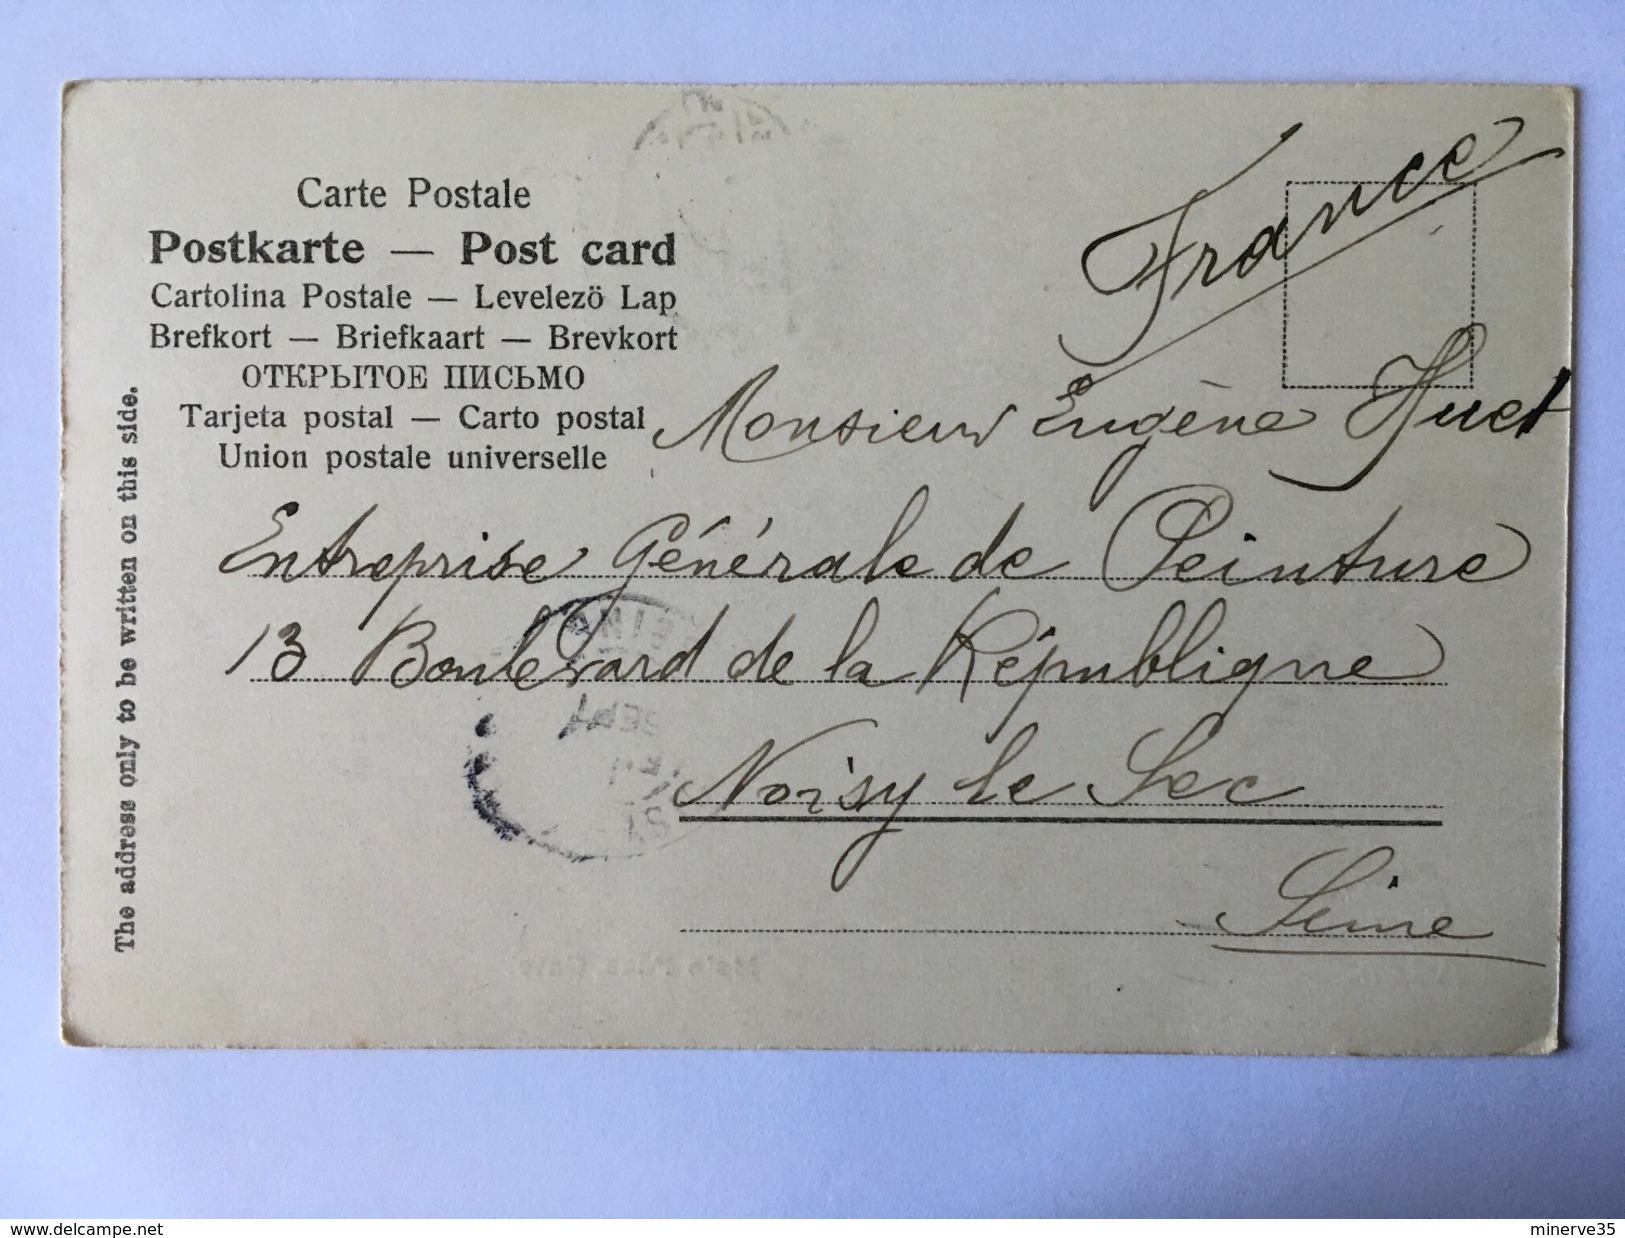 Carte Postale
Postkarte — Post card
Cartolina Postale — Levelező Lap
Brefkort — Briefkaart — Brevkort
ОТКРЫТОЕ ПИСЬМО
Tarjeta postal — Carto postal
Union postale universelle
The address only to be written on this side.
France
Monsieur Eugène Huet
Entreprise Générale de Peinture
13 Boulevard de la République
Noisy le Sec
Seine
www.delcampe.net
minerve35